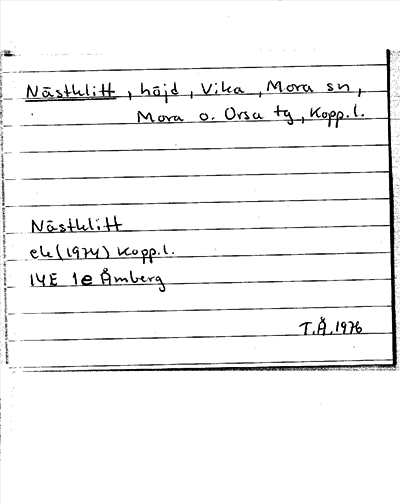 Nästklitt, höjd, Vika, Mora sn,
Mora o. Orsa tg, Kopp.l.
Nästklitt
ek (1974) Kopp.l.
14E 1e Åmberg
T.Å. 1976